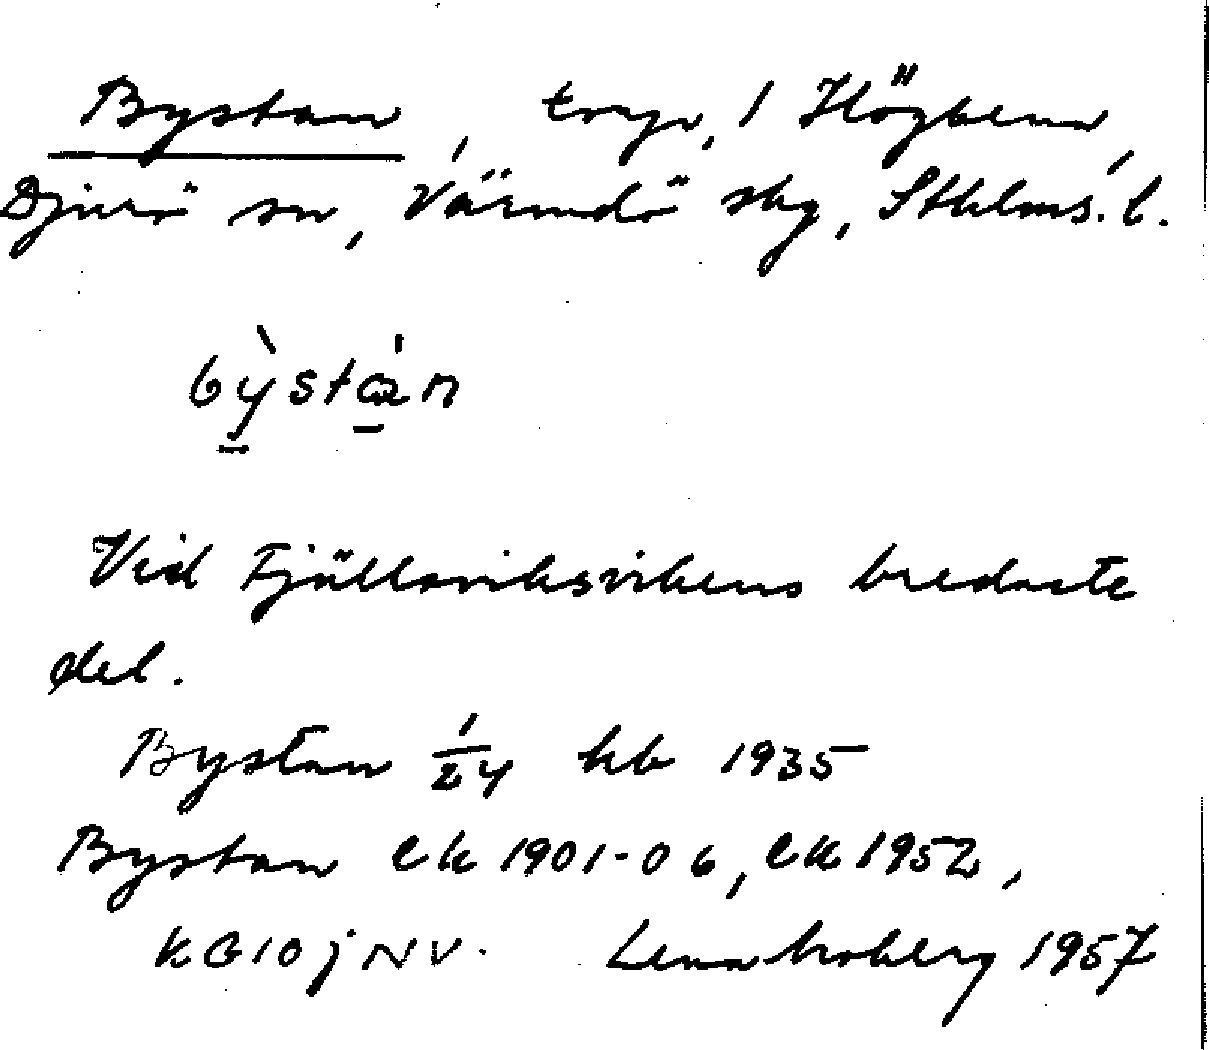 Bystan, torp, 1 Högbena,
Djurö sn, Värmdö skg, Sthlms. l.
bỳstὰn
Vid Fjällsviksvikens bredaste
del.
Bystan 1/24 kb 1935
Bystan ek 1901-06, ek 1952,
KG 10 j NV. Lena Moberg 1957